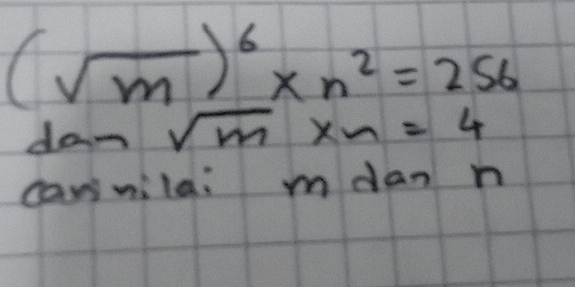 (√m)⁶ × n² = 256
dan √m × n = 4
cari nilai m dan n